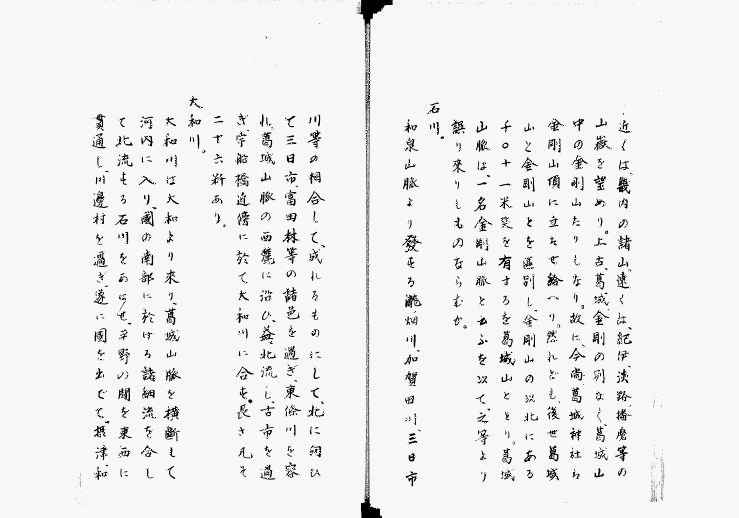 近くは、畿内の諸山、遠くは、紀伊、淡路、播磨等の
山嶽を望めり。上古、葛城、金剛の別なく、葛城山
中の金剛山たりしなり。故に、今尚葛城神社も
金剛山頂に立たせ給へり。然れども、後世葛城
山と金剛山とを區別し、金剛山の以北にある
千〇十一米突を有するを葛城山とよべり。葛城
山脈は、一名金剛山脈と云ふを以て、之等より
誤り來りしものならむか。
石川。
和泉山脈より發する瀧畑川、加賀田川、三日市
川等の相合して、成れるものにして、北に向ひ
て三日市、富田林等の諸邑を過ぎ、東條川を容
れ、葛城山脈の西麓に沿ひ、益北流し、古市を過
ぎ、字船橋近傍に於て大和川に合す。長さ凡そ
二十六粁あり。
大和川。
大和川は大和より來り、葛城山脈を横斷して
河内に入り、國の南部に於ける諸細流を合し
て北流する石川をあはせ、平野の間を東西に
貫通し、川邊村を過ぎ、遂に國を出でて、攝津、和